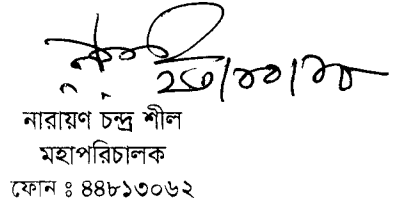 নারায়ণ চন্দ্র শীল
মহাপরিচালক
ফোন ঃ ৪৪৮১৩০৬২